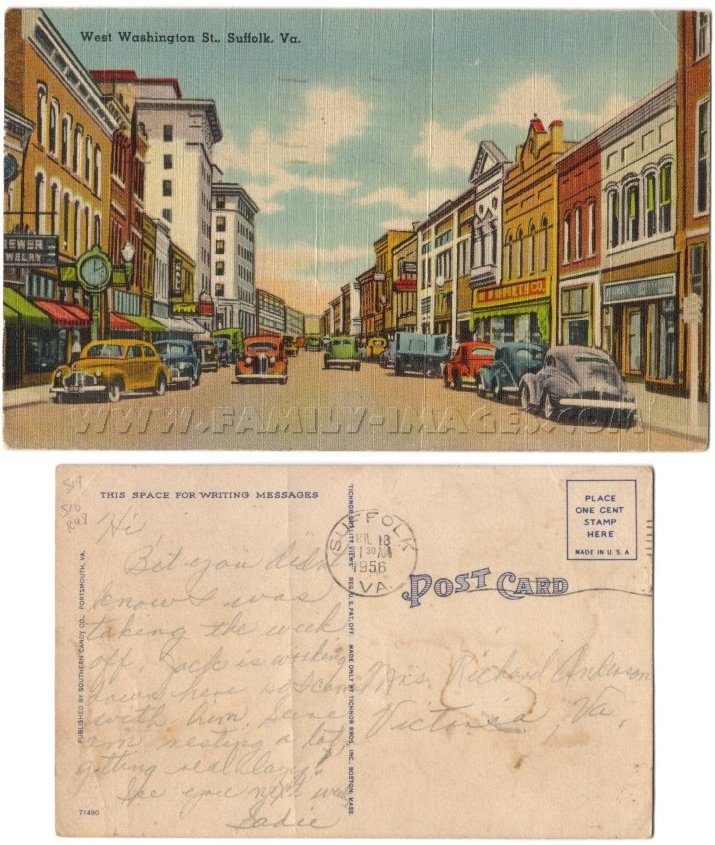 West Washington St., Suffolk, Va.
BREWER
JEWELRY
WWW.FAMILY-IMAGES.COM
THIS SPACE FOR WRITING MESSAGES
Hi,
Bet you didn't
know I was
taking the week
off. Jack is working
down here so I came
with him. Sure
am resting a lot,
getting real lazy!
See you next week
Sadie
PUBLISHED BY SOUTHERN CANDY CO., PORTSMOUTH, VA.
71490
TICHNOR QUALITY VIEWS REG. U. S. PAT. OFF. MADE ONLY BY TICHNOR BROS., INC., BOSTON, MASS.
SUFFOLK
18
1956
VA
POST CARD
PLACE
ONE CENT
STAMP
HERE
MADE IN U. S. A
Mrs. Richard Anderson
Victoria, Va.